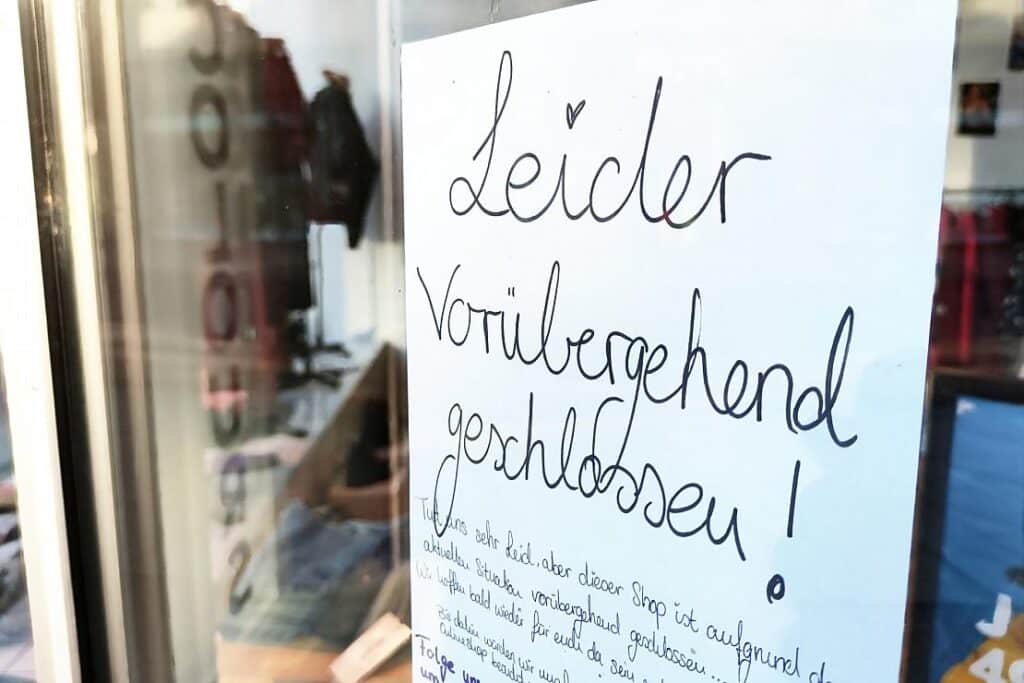 Leider
Vorübergehend
geschlossen!
Tut uns sehr Leid, aber dieser Shop ist aufgrund
aktuellen Situation vorübergehend geschlossen...
Wir hoffen bald wieder für euch da sein
Bis dahin werden wir uns
Onlineshop
Folge
um